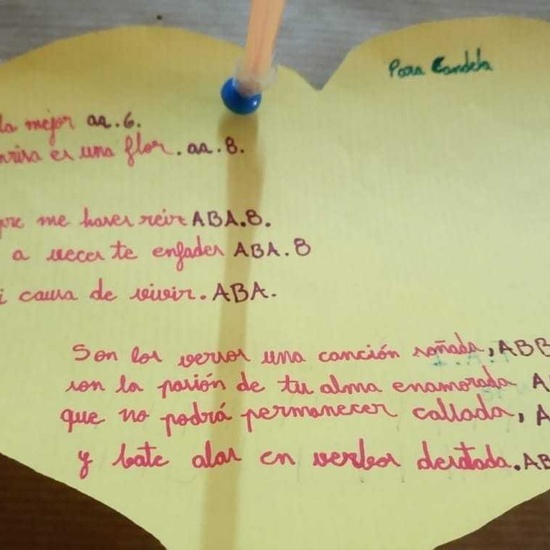 Para Candela
la mejor aa.6.
nrisa es una flor. aa.8.
que me haces reir ABA.8.
a veces te enfades ABA.8
i causa de vivir. ABA.
Son los versos una canción soñada, ABB
son la pasión de tu alma enamorada A
que no podrá permanecer callada, A
y bate alas en verbos desatada. AB